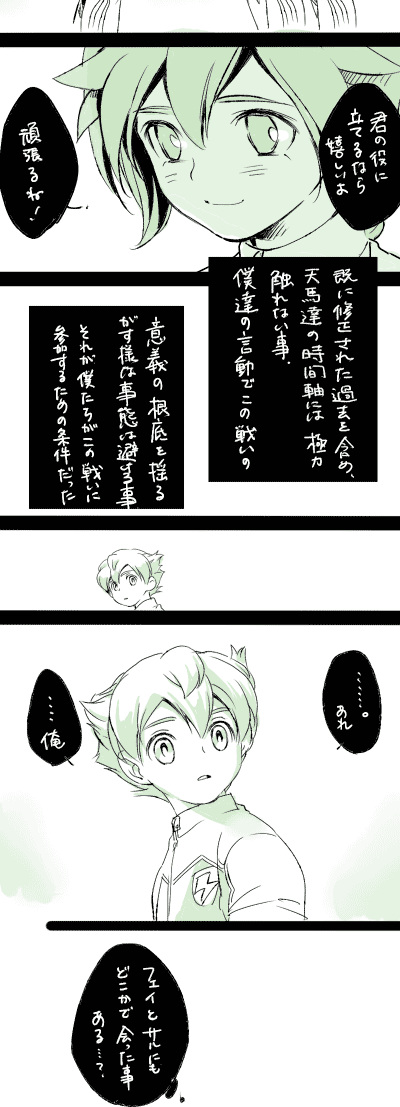 君の役に
立てるなら
嬉しいよ
頑張るね！
既に修正された過去を含め、
天馬達の時間軸には極力
触れない事．
僕達の言動でこの戦いの
意義の根底を揺る
がす様な事態は避ける事
それが僕たちがこの戦いに
参加するための条件だった
……。
あれ
……
俺
フェイとサルにも
どこかで会った事
ある…？